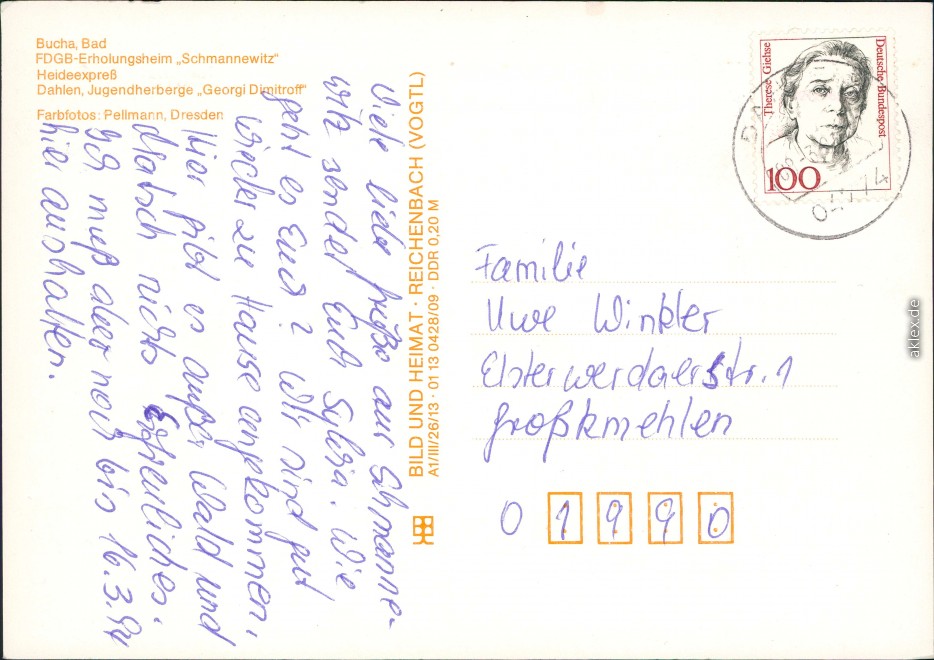 Bucha, Bad
FDGB-Erholungsheim „Schmannewitz"
Heideexpreß
Dahlen, Jugendherberge „Georgi Dimitroff"
Farbfotos: Pellmann, Dresden
Viele liebe Grüße aus Schmanne-
witz sendet Euch Sylvia. Wie
geht es Euch? Wir sind gut
wieder zu Hause angekommen,
Hier gibt es außer Wald und
Matsch nichts Erfreuliches.
Ich muß aber noch bis 16.3.94
hier aushalten.
BILD UND HEIMAT · REICHENBACH (VOGTL)
A1/III/26/13 · 01 13 0428/09 · DDR 0,20 M
Therese Giehse
Deutsche Bundespost
100
Familie
Uwe Winkler
Elsterwerdaerstr. 1
Großkmehlen
0 1 9 9 0
aklex.de